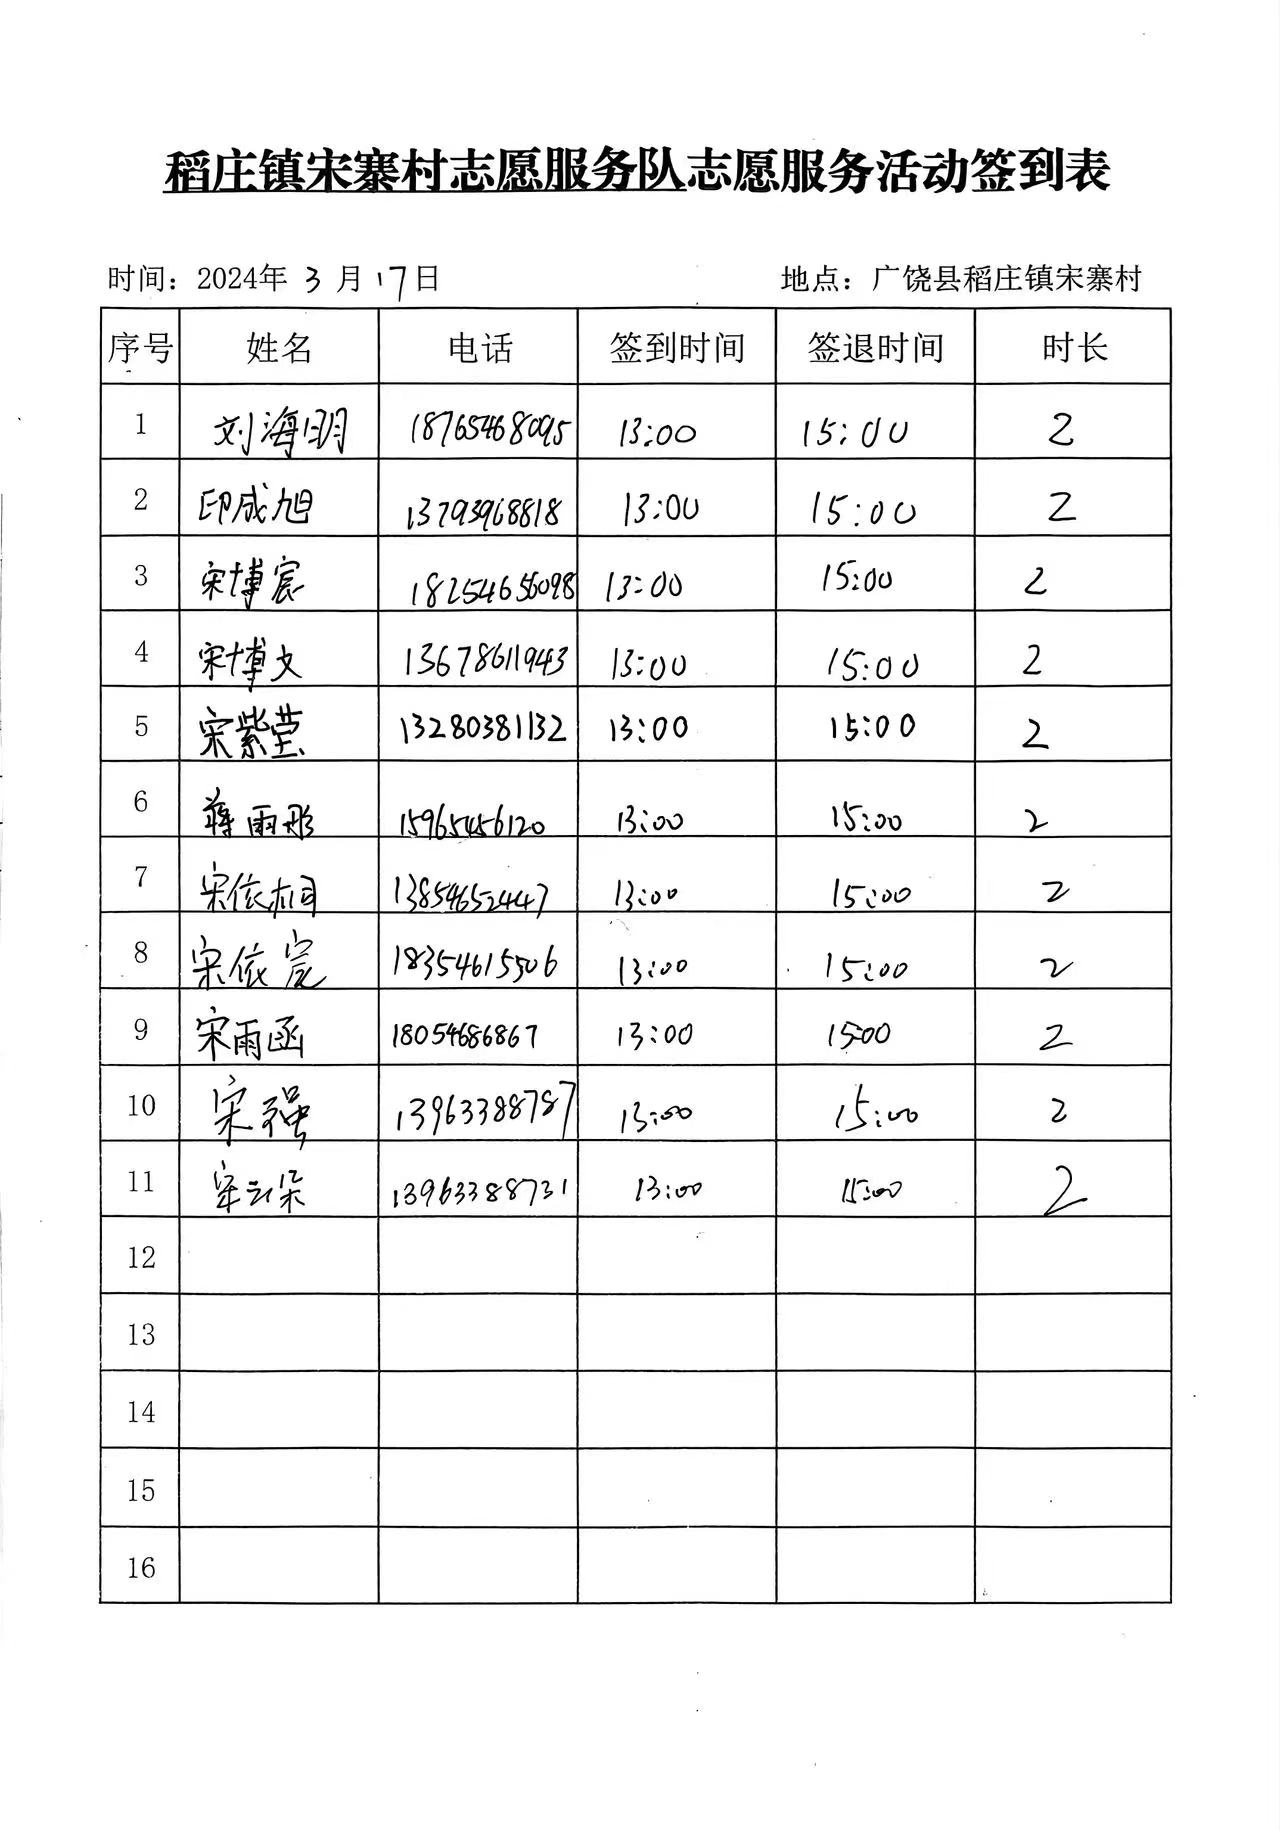 稻庄镇宋寨村志愿服务队志愿服务活动签到表
时间：2024年 3 月 17日 地点：广饶县稻庄镇宋寨村
序号 姓名 电话 签到时间 签退时间 时长
1 刘海明 18765468095 13:00 15:00 2
2 印成旭 13793968818 13:00 15:00 2
3 宋博宸 18254656098 13:00 15:00 2
4 宋博文 13678611943 13:00 15:00 2
5 宋紫莹 13280381132 13:00 15:00 2
6 蒋雨彤 15965456120 13:00 15:00 2
7 宋依桐 13854652447 13:00 15:00 2
8 宋依宸 18354615506 13:00 15:00 2
9 宋雨函 18054686867 13:00 15:00 2
10 宋强 13963388787 13:00 15:00 2
11 宋云朵 13963388731 13:00 15:00 2
12
13
14
15
16